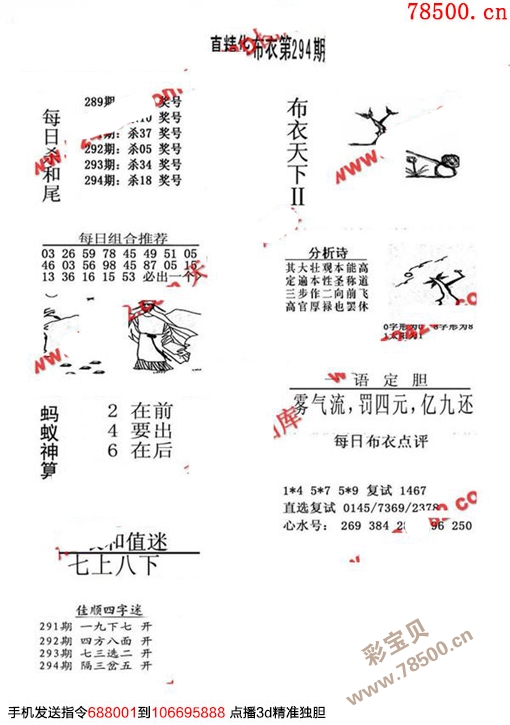 78500.cn
布衣第294期
每日杀和尾
289期: 奖号
奖号
杀37 奖号
292期: 杀05 奖号
293期: 杀34 奖号
294期: 杀18 奖号
布衣天下II
每日组合推荐
03 26 59 78 45 49 51 05
46 03 56 98 45 87 05
13 36 16 15 53 必出一个
分析诗
其大壮观本能高
定遍本性圣称道
三步作二向前飞
高官厚禄也罢休
0字形为0 8字形为8
太阳为1
蚂蚁神算
2 在前
4 要出
6 在后
一语定胆
雾气流,罚四元,亿九还
每日布衣点评
1*4 5*7 5*9 复试 1467
直选复试 0145/7369/2378
心水号: 269 384 96 250
和值迷
七上八下
佳顺四字迷
291期 一九下七 开
292期 四方八面 开
293期 七三选二 开
294期 隔三岔五 开
彩宝贝
www.78500.cn
手机发送指令688001到106695888 点播3d精准独胆